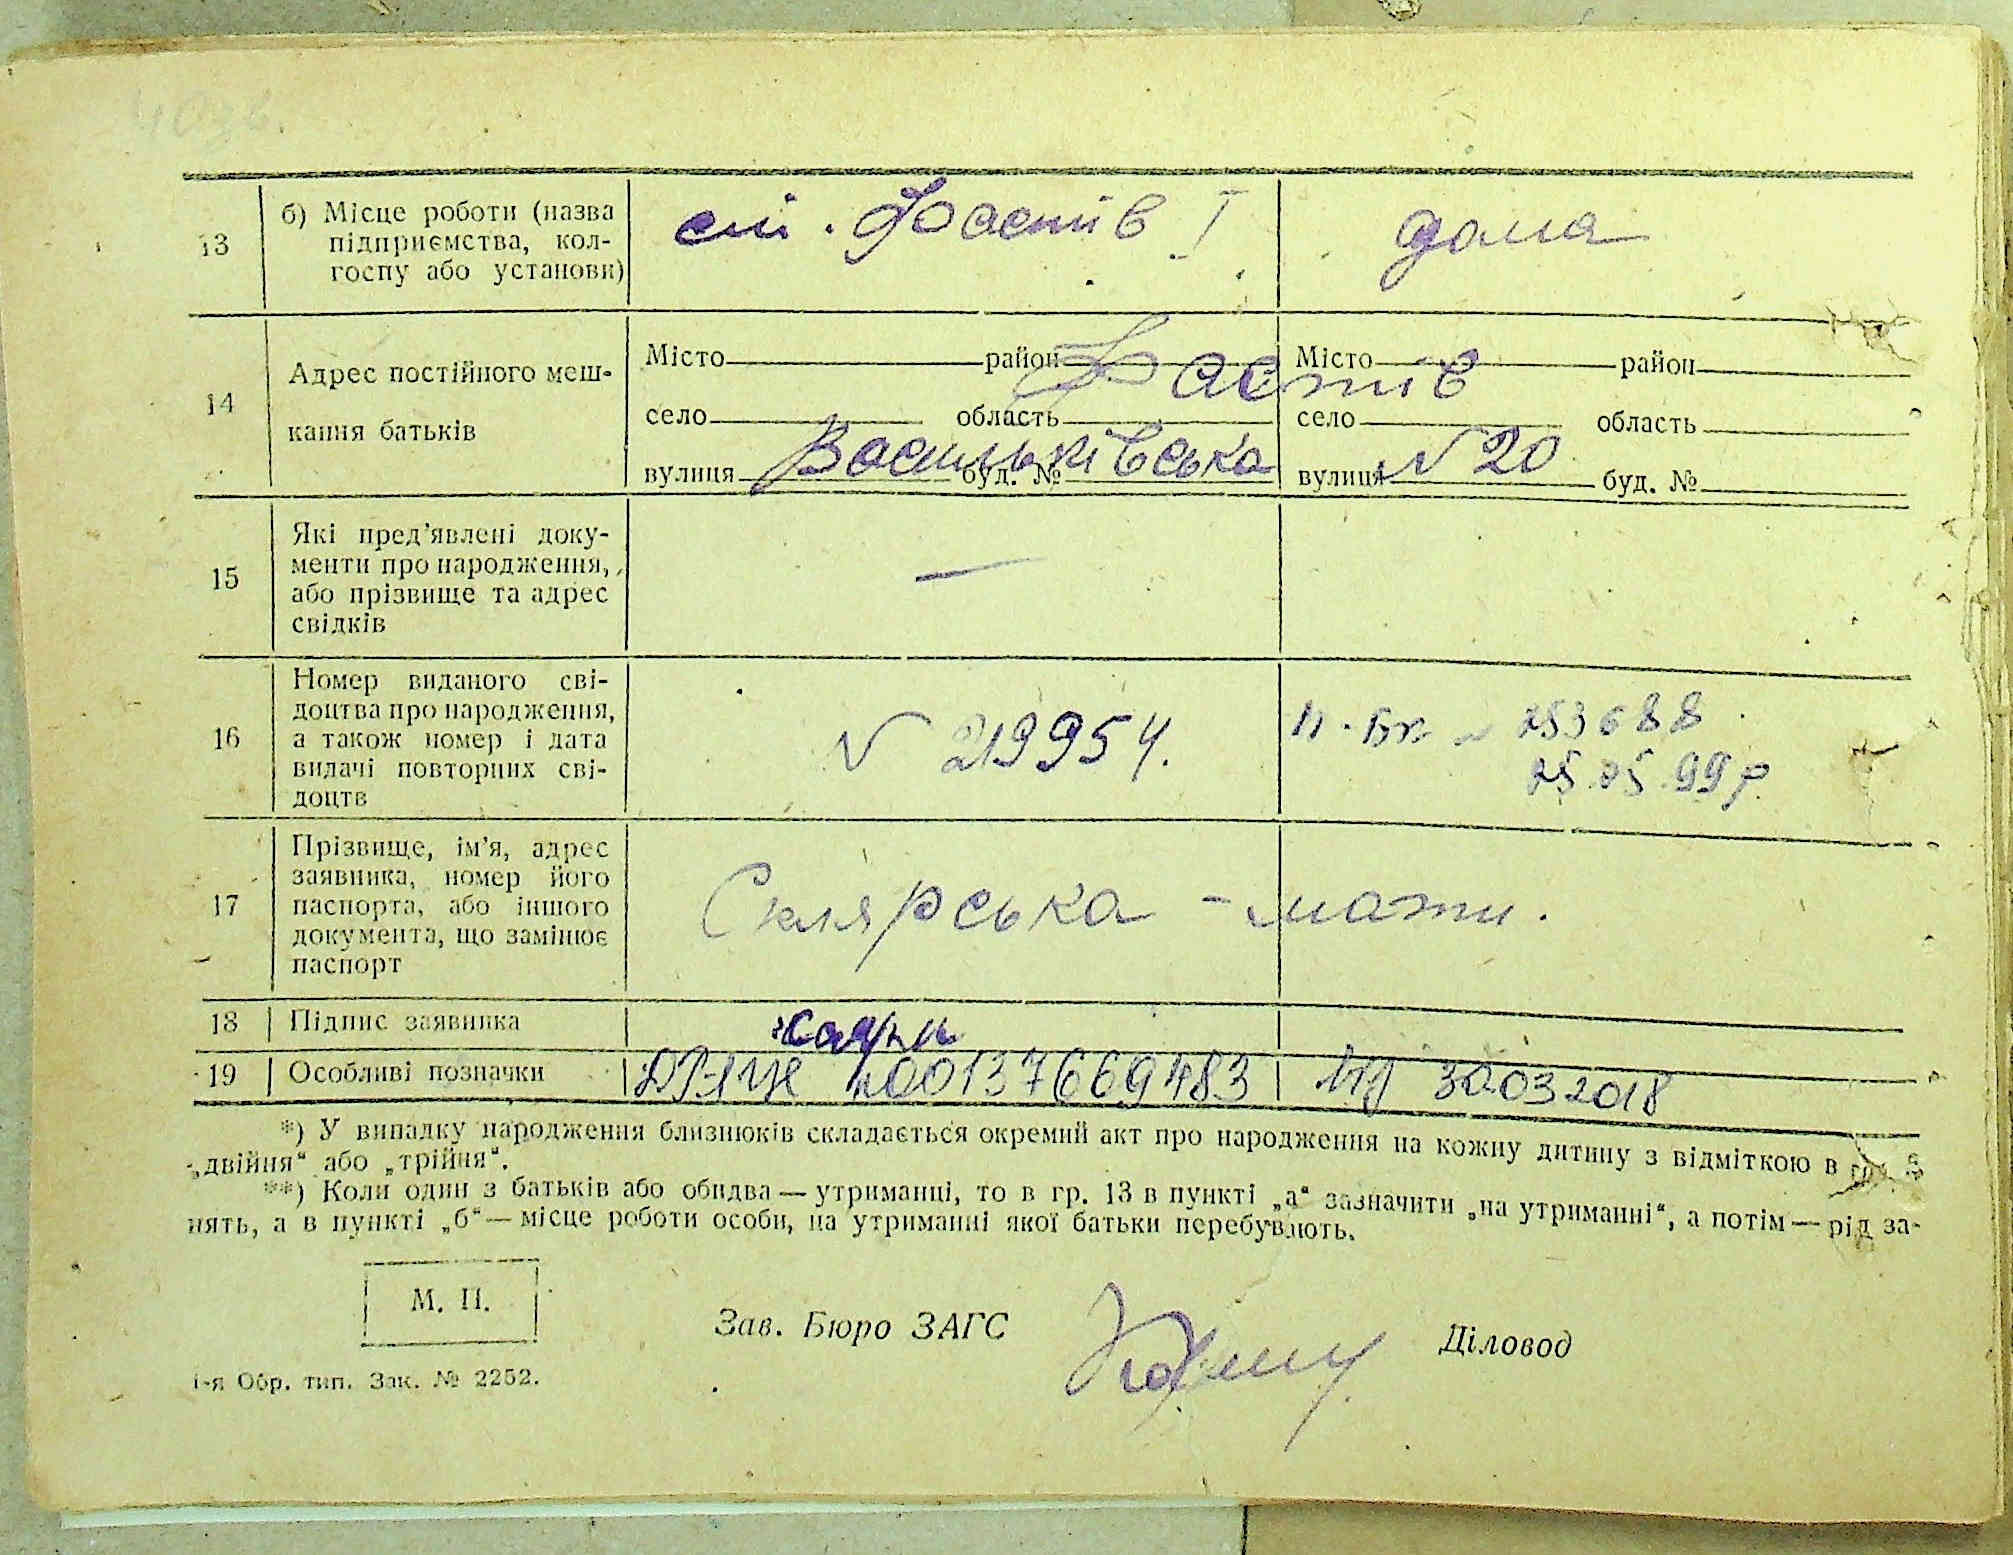 13
б) Місце роботи (назва
підприємства, кол-
госпу або установи)
ст. Фастів І
дома
14
Адрес постійного меш-
кання батьків
Місто район
Місто район
Фастів
село область
село область
вулиця буд. №
Васильківська
вулиця буд. №
№ 20
15
Які пред’явлені доку-
менти про народження,
або прізвище та адрес
свідків
—
16
Номер виданого сві-
доцтва про народження,
а також номер і дата
видачі повторних сві-
доцтв
№ 219954.
253688
25.05.99р
17
Прізвище, ім’я, адрес
заявника, номер його
паспорта, або іншого
документа, що замінює
паспорт
Склярська - мати.
18
Підпис заявника
19
Особливі позначки
00137669483
30.03.2018
*) У випадку народження близнюків складається окремий акт про народження на кожну дитину з відміткою в гр. 3
„двійня“ або „трійня“.
**) Коли один з батьків або обидва — утриманці, то в гр. 13 в пункті „а“ зазначити „на утриманні“, а потім — рід за-
нять, а в пункті „б“ — місце роботи особи, на утриманні якої батьки перебувають.
М. П.
Зав. Бюро ЗАГС
Діловод
1-я Обр. тип. Зак. № 2252.